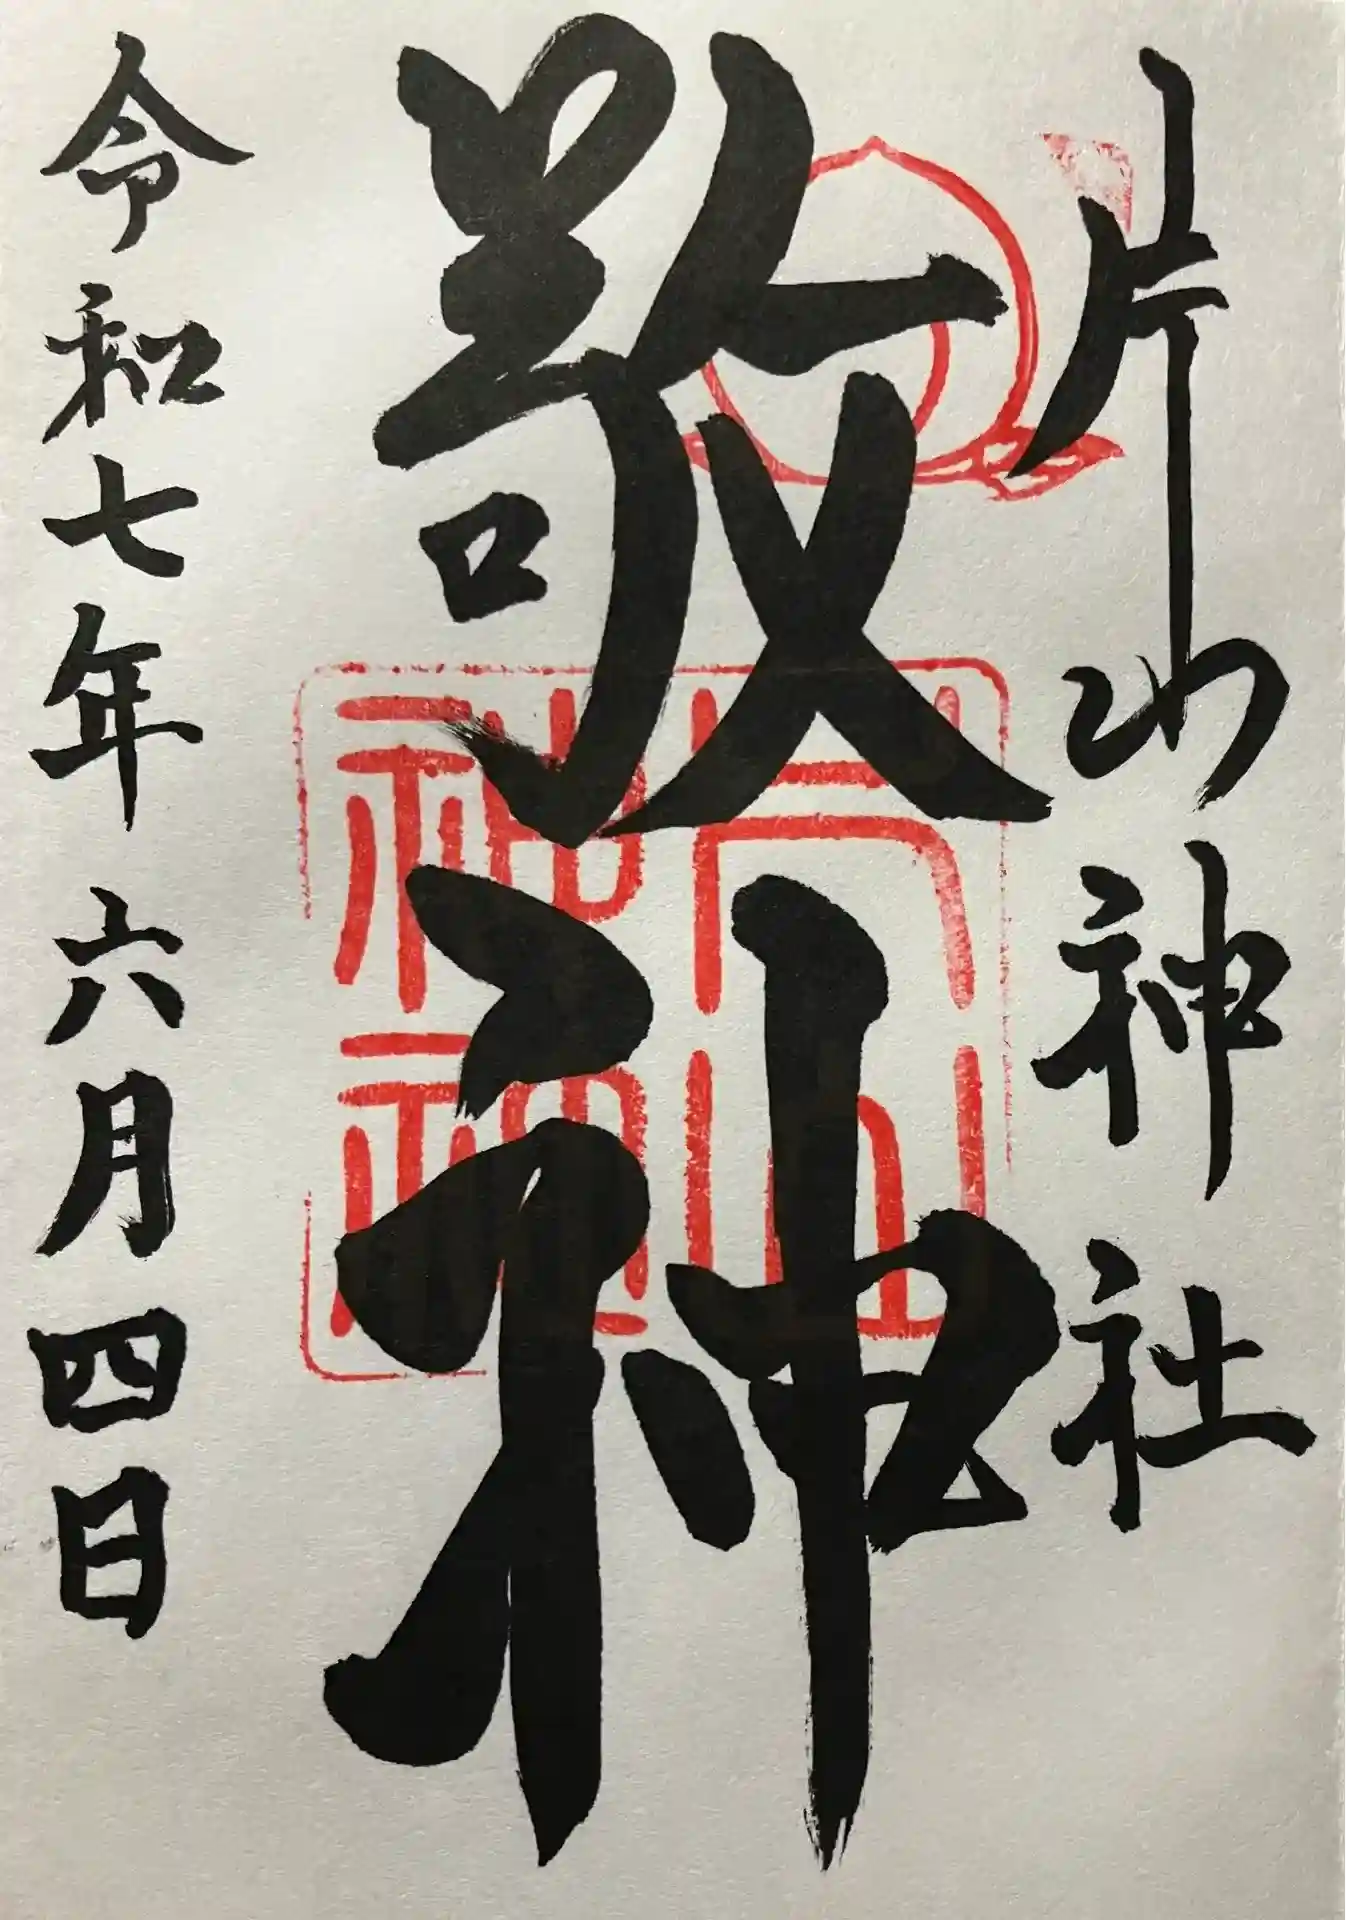 片山神社
敬神
令和七年六月四日
片山神社